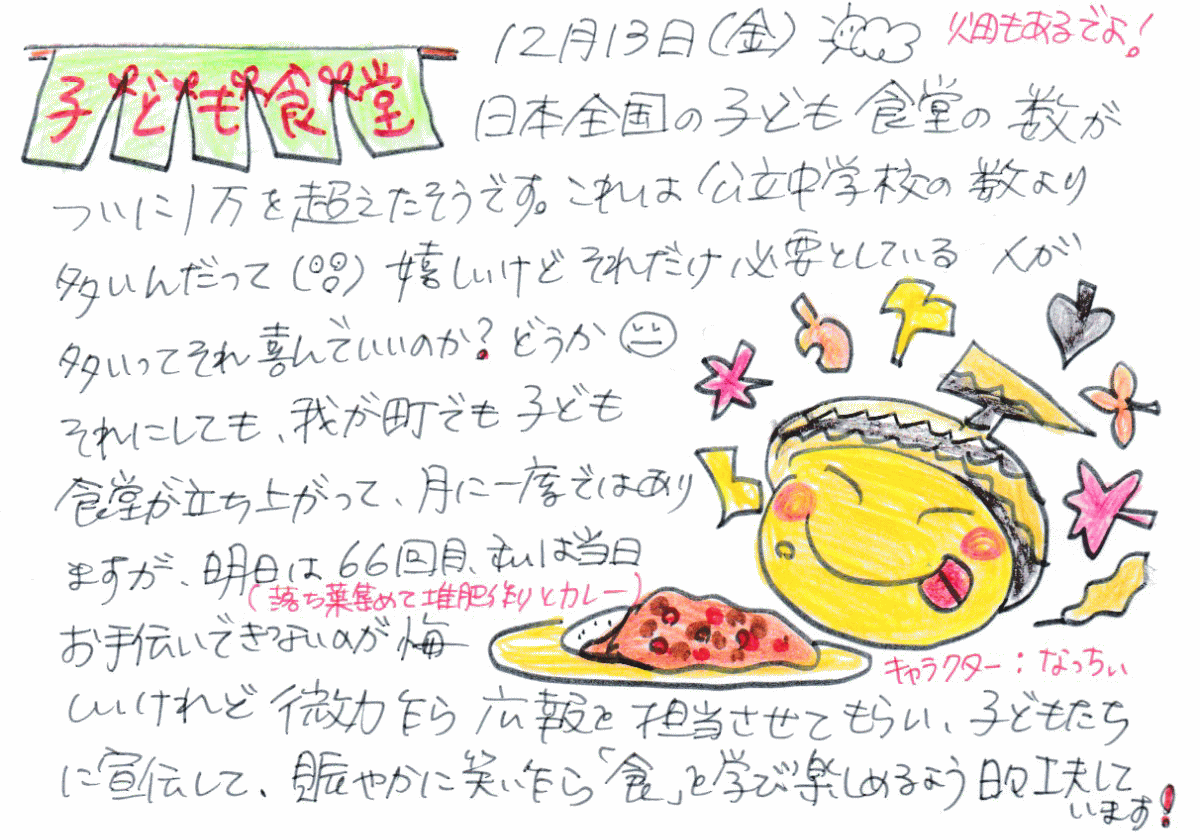 子ども食堂
12月13日(金)
畑もあるでよ!
日本全国の子ども食堂の数が
ついに1万を超えたそうです。これは公立中学校の数より
多いんだって(°°)嬉しいけどそれだけ必要としている人が
多いってそれ喜んでいいのか?どうか
それにしても、我が町でも子ども
食堂が立ち上がって、月に一度ではあり
ますが、明日は66回目、私は当日
(落ち葉集めて堆肥作りとカレー)
お手伝いできないのが悔
しいけれど微力乍ら広報を担当させてもらい、子どもたち
キャラクター:なっちぃ
に宣伝して、賑やかに笑い乍ら「食」を学び楽しめるよう 工夫して
います!